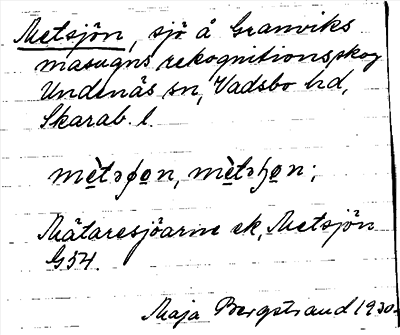 Metsjön, sjö å Granviks
masugns rekognitionsskog
Undenäs sn, Vadsbo hd,
Skarab. l.
mètəʃo̲n, mètəɧo̲n;
Mätaresjöarne ek, Metsjön
G54.
Maja Bergstrand 1930.